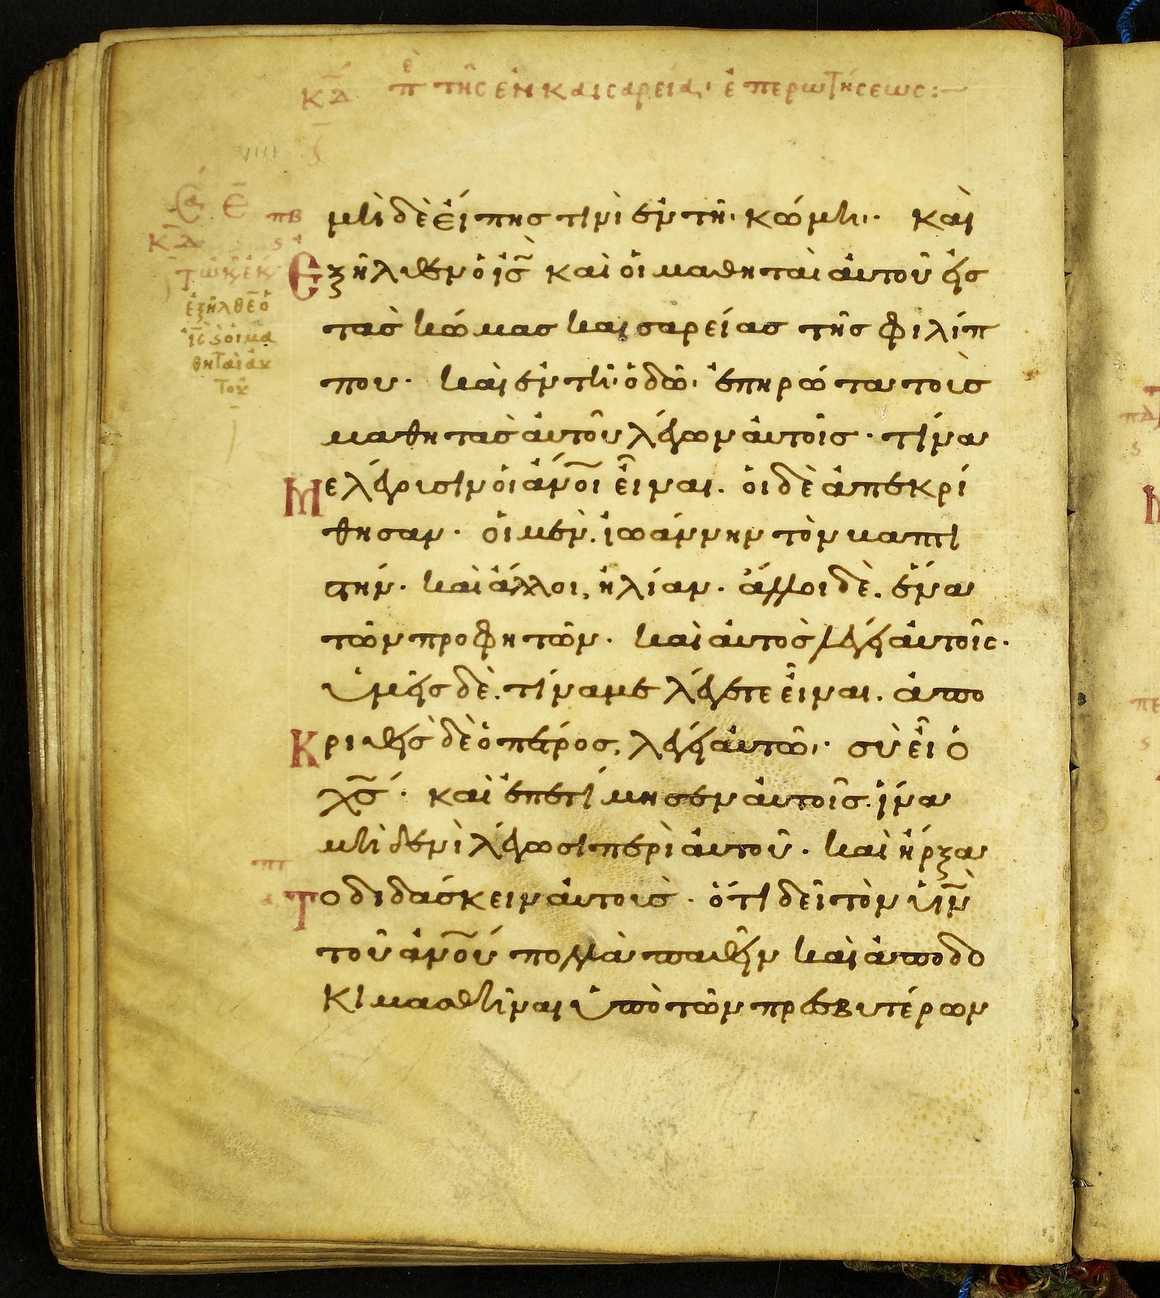 κδ πε τῆς ἐν καισαρείαι ἐπερωτήσεως:
πβ
κδ
ἐξῆλθεν ὁ
ἰς καὶ οἱ μα
θηταὶ αὐ
τοῦ
μηδὲ εἴπης τινὶ ἐν τῆι κώμηι· καὶ
Ἐξῆλθεν ὁ ἰς καὶ οἱ μαθηταὶ αὐτοῦ εἰς
τὰς κώμας καισαρείας τῆς φιλίπ
που· καὶ ἐν τῆι ὁδῶι ἐπηρώτα τοὺς
μαθητὰς αὐτοῦ λέγων αὐτοῖς· τίνα
Με λέγουσιν οἱ ἄνοι εἶναι. οἱ δὲ ἀπεκρί
θησαν· οἱ μὲν. ἰωάννην τὸν βαπτι
στήν· καὶ ἄλλοι, ἠλίαν· ἄλλοι δὲ. ἕνα
τῶν προφητῶν· καὶ αὐτὸς λέγει αὐτοῖς·
ὑμεῖς δὲ. τίνα με λέγετε εἶναι. ἀπο
Κριθεὶς δὲ ὁ πέτρος, λέγει αὐτῶι· σὺ εἶ ὁ
χς· καὶ ἐπετίμησεν αὐτοῖς. ἵνα
μηδενὶ λέγωσι περὶ αὐτοῦ· καὶ ἤρξα
Το διδάσκειν αὐτοὺς· ὅτι δεῖ τὸν υἱν
τοῦ ἀνου πολλὰ παθεῖν καὶ ἀποδο
κιμασθῆναι ὑπὸ τῶν πρεσβυτέρων